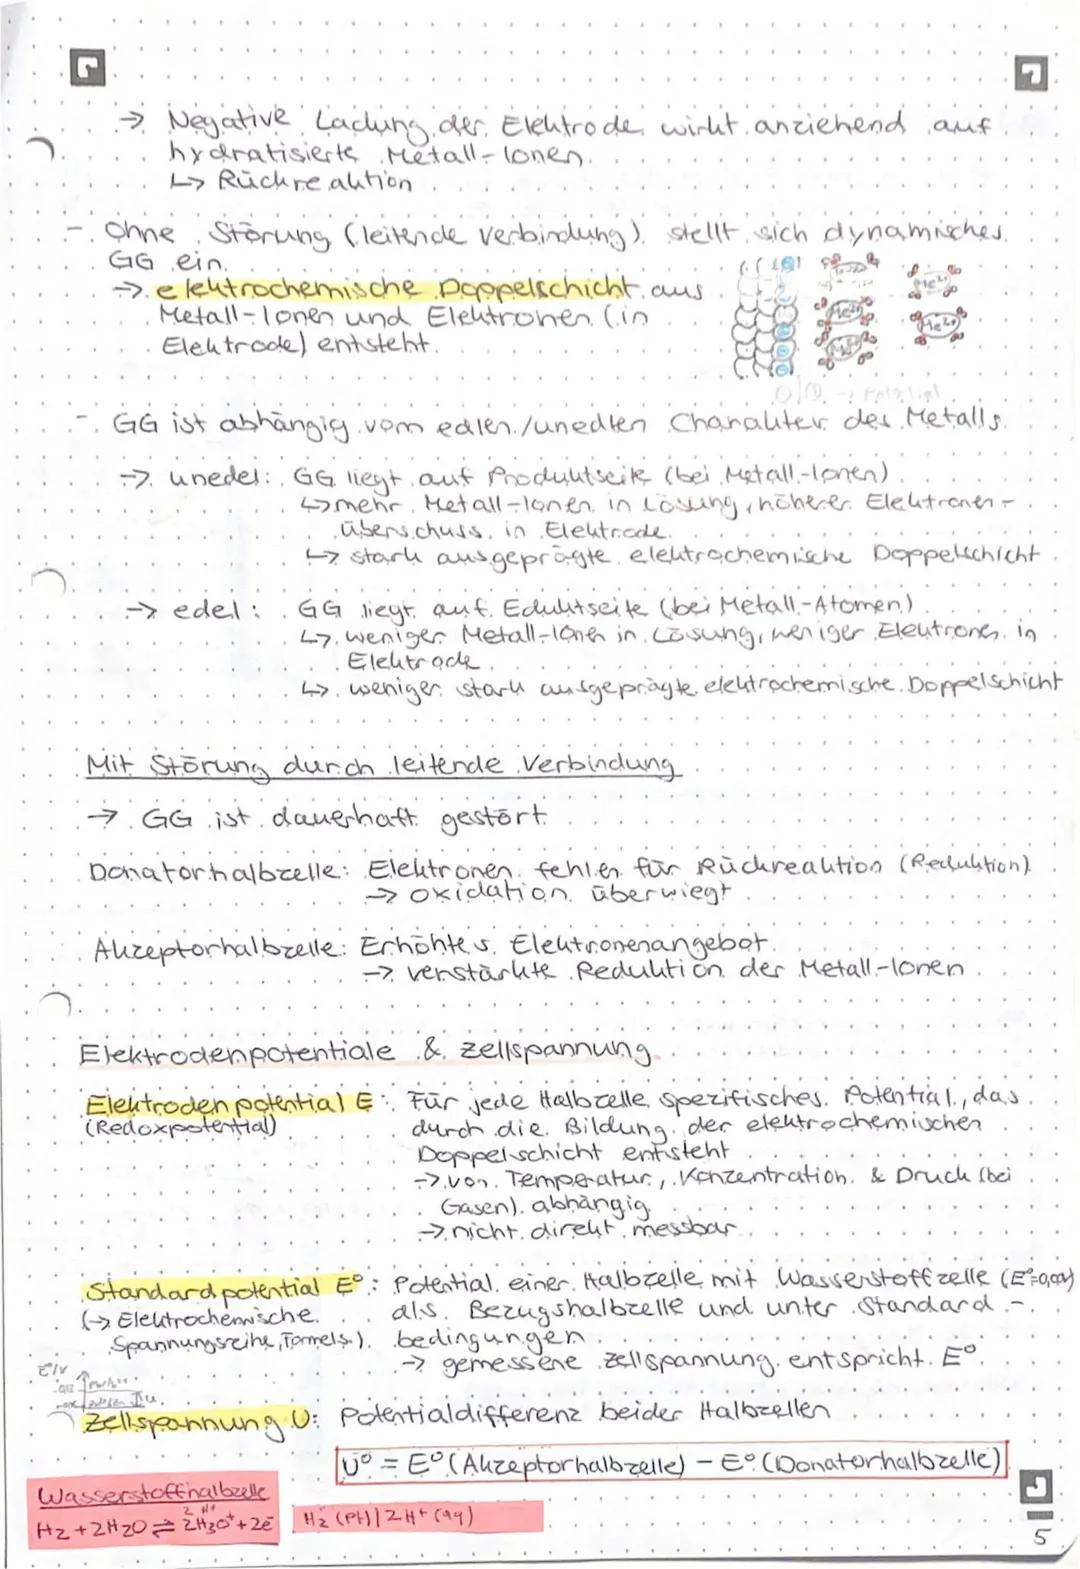 → Negative Ladung der Elektrode wirkt anziehend auf
hydratisierte Metall-Ionen
↳ Rückreaktion
- Ohne Störung (leitende Verbindung) stellt sich dynamisches
GG ein.
→ elektrochemische Doppelschicht aus
Metall-Ionen und Elektronen (in
Elektrode) entsteht.
Me²⁺
Me²⁺
Me²⁺
Me²⁺
⊖|⊕ → Potential
- GG ist abhängig vom edlen/unedlen Charakter des Metalls.
→ unedel: GG liegt auf Produktseite (bei Metall-Ionen)
↳ mehr Metall-Ionen in Lösung, höherer Elektronen-
überschuss in Elektrode.
↳ stark ausgeprägte elektrochemische Doppelschicht
→ edel: GG liegt auf Eduktseite (bei Metall-Atomen)
↳ weniger Metall-Ionen in Lösung, weniger Elektronen in
Elektrode.
↳ weniger stark ausgeprägte elektrochemische Doppelschicht
Mit Störung durch leitende Verbindung
→ GG ist dauerhaft gestört
Donatorhalbzelle: Elektronen fehlen für Rückreaktion (Reduktion)
→ Oxidation überwiegt
Akzeptorhalbzelle: Erhöhtes Elektronenangebot
→ verstärkte Reduktion der Metall-Ionen
Elektrodenpotentiale & Zellspannung
Elektrodenpotential E: Für jede Halbzelle spezifisches Potential, das
(Redoxpotential) durch die Bildung der elektrochemischen
Doppelschicht entsteht
→ von Temperatur, Konzentration & Druck (bei
Gasen) abhängig
→ nicht direkt messbar
Standardpotential E°: Potential einer Halbzelle mit Wasserstoffzelle (E°=0,00V)
(→ Elektrochemische als Bezugshalbzelle und unter Standard-
Spannungsreihe, Formels.) bedingungen
→ gemessene Zellspannung entspricht E°.
E°/V
Zellspannung U: Potentialdifferenz beider Halbzellen
U° = E° (Akzeptorhalbzelle) - E° (Donatorhalbzelle)
Wasserstoffhalbzelle
2 H⁺
H₂ + 2H₂O ⇌ 2H₃O⁺ + 2e⁻ H₂ (Pt) | 2H⁺ (aq)
5